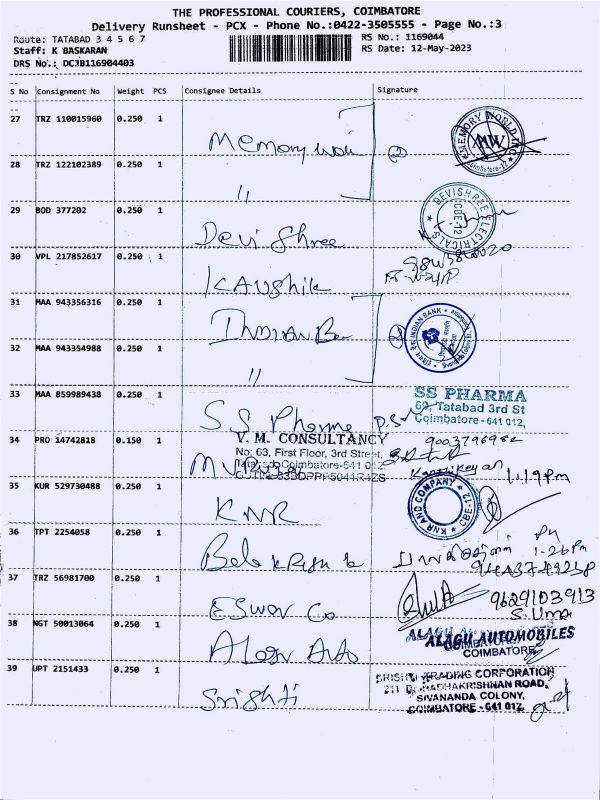 THE PROFESSIONAL COURIERS, COIMBATORE
Delivery Runsheet - PCX - Phone No.:0422-3505555 - Page No.:3
Route: TATABAD 3 4 5 6 7
RS No.: 1169044
Staff: K BASKARAN
RS Date: 12-May-2023
DRS No.: DC3B116904403
S No Consignment No Weight PCS Consignee Details Signature
27 TRZ 110015960 0.250 1
MEMORY WORLD INC
MW
Coimbatore-12
Memory
2
28 TRZ 122102389 0.250 1
"
29 BOD 377202 0.250 1
DEVISHREE ELECTRICALS
CBE-12
Devi Shree
30 VPL 217852617 0.250 1
Kaushik
31 MAA 943356316 0.250 1
INDIAN BANK
INDIAN
2
32 MAA 943354988 0.250 1
"
33 MAA 859989438 0.250 1
SS PHARMA
69, Tatabad 3rd St
Coimbatore - 641 012,
S.S Pharma
34 PRO 14742818 0.150 1
V. M. CONSULTANCY
No: 63, First Floor, 3rd Street,
Tatabad, Coimbatore-641 012
9003796982
Karthikeyan
1.19pm
35 KUR 529730488 0.250 1
KNR AND COMPANY
CBE-12
KNR
36 TPT 2254058 0.250 1
1-26 Pm
37 TRZ 56981700 0.250 1
9629103913
S. Uma
Eswar Co
38 NGT 50013064 0.250 1
ALAGU AUTOMOBILES
COIMBATORE
Auto
39 UPT 2151433 0.250 1
SRISHTI TRADING CORPORATION
RADHAKRISHNAN ROAD,
SIVANANDA COLONY,
COIMBATORE - 641 012.
Srishti